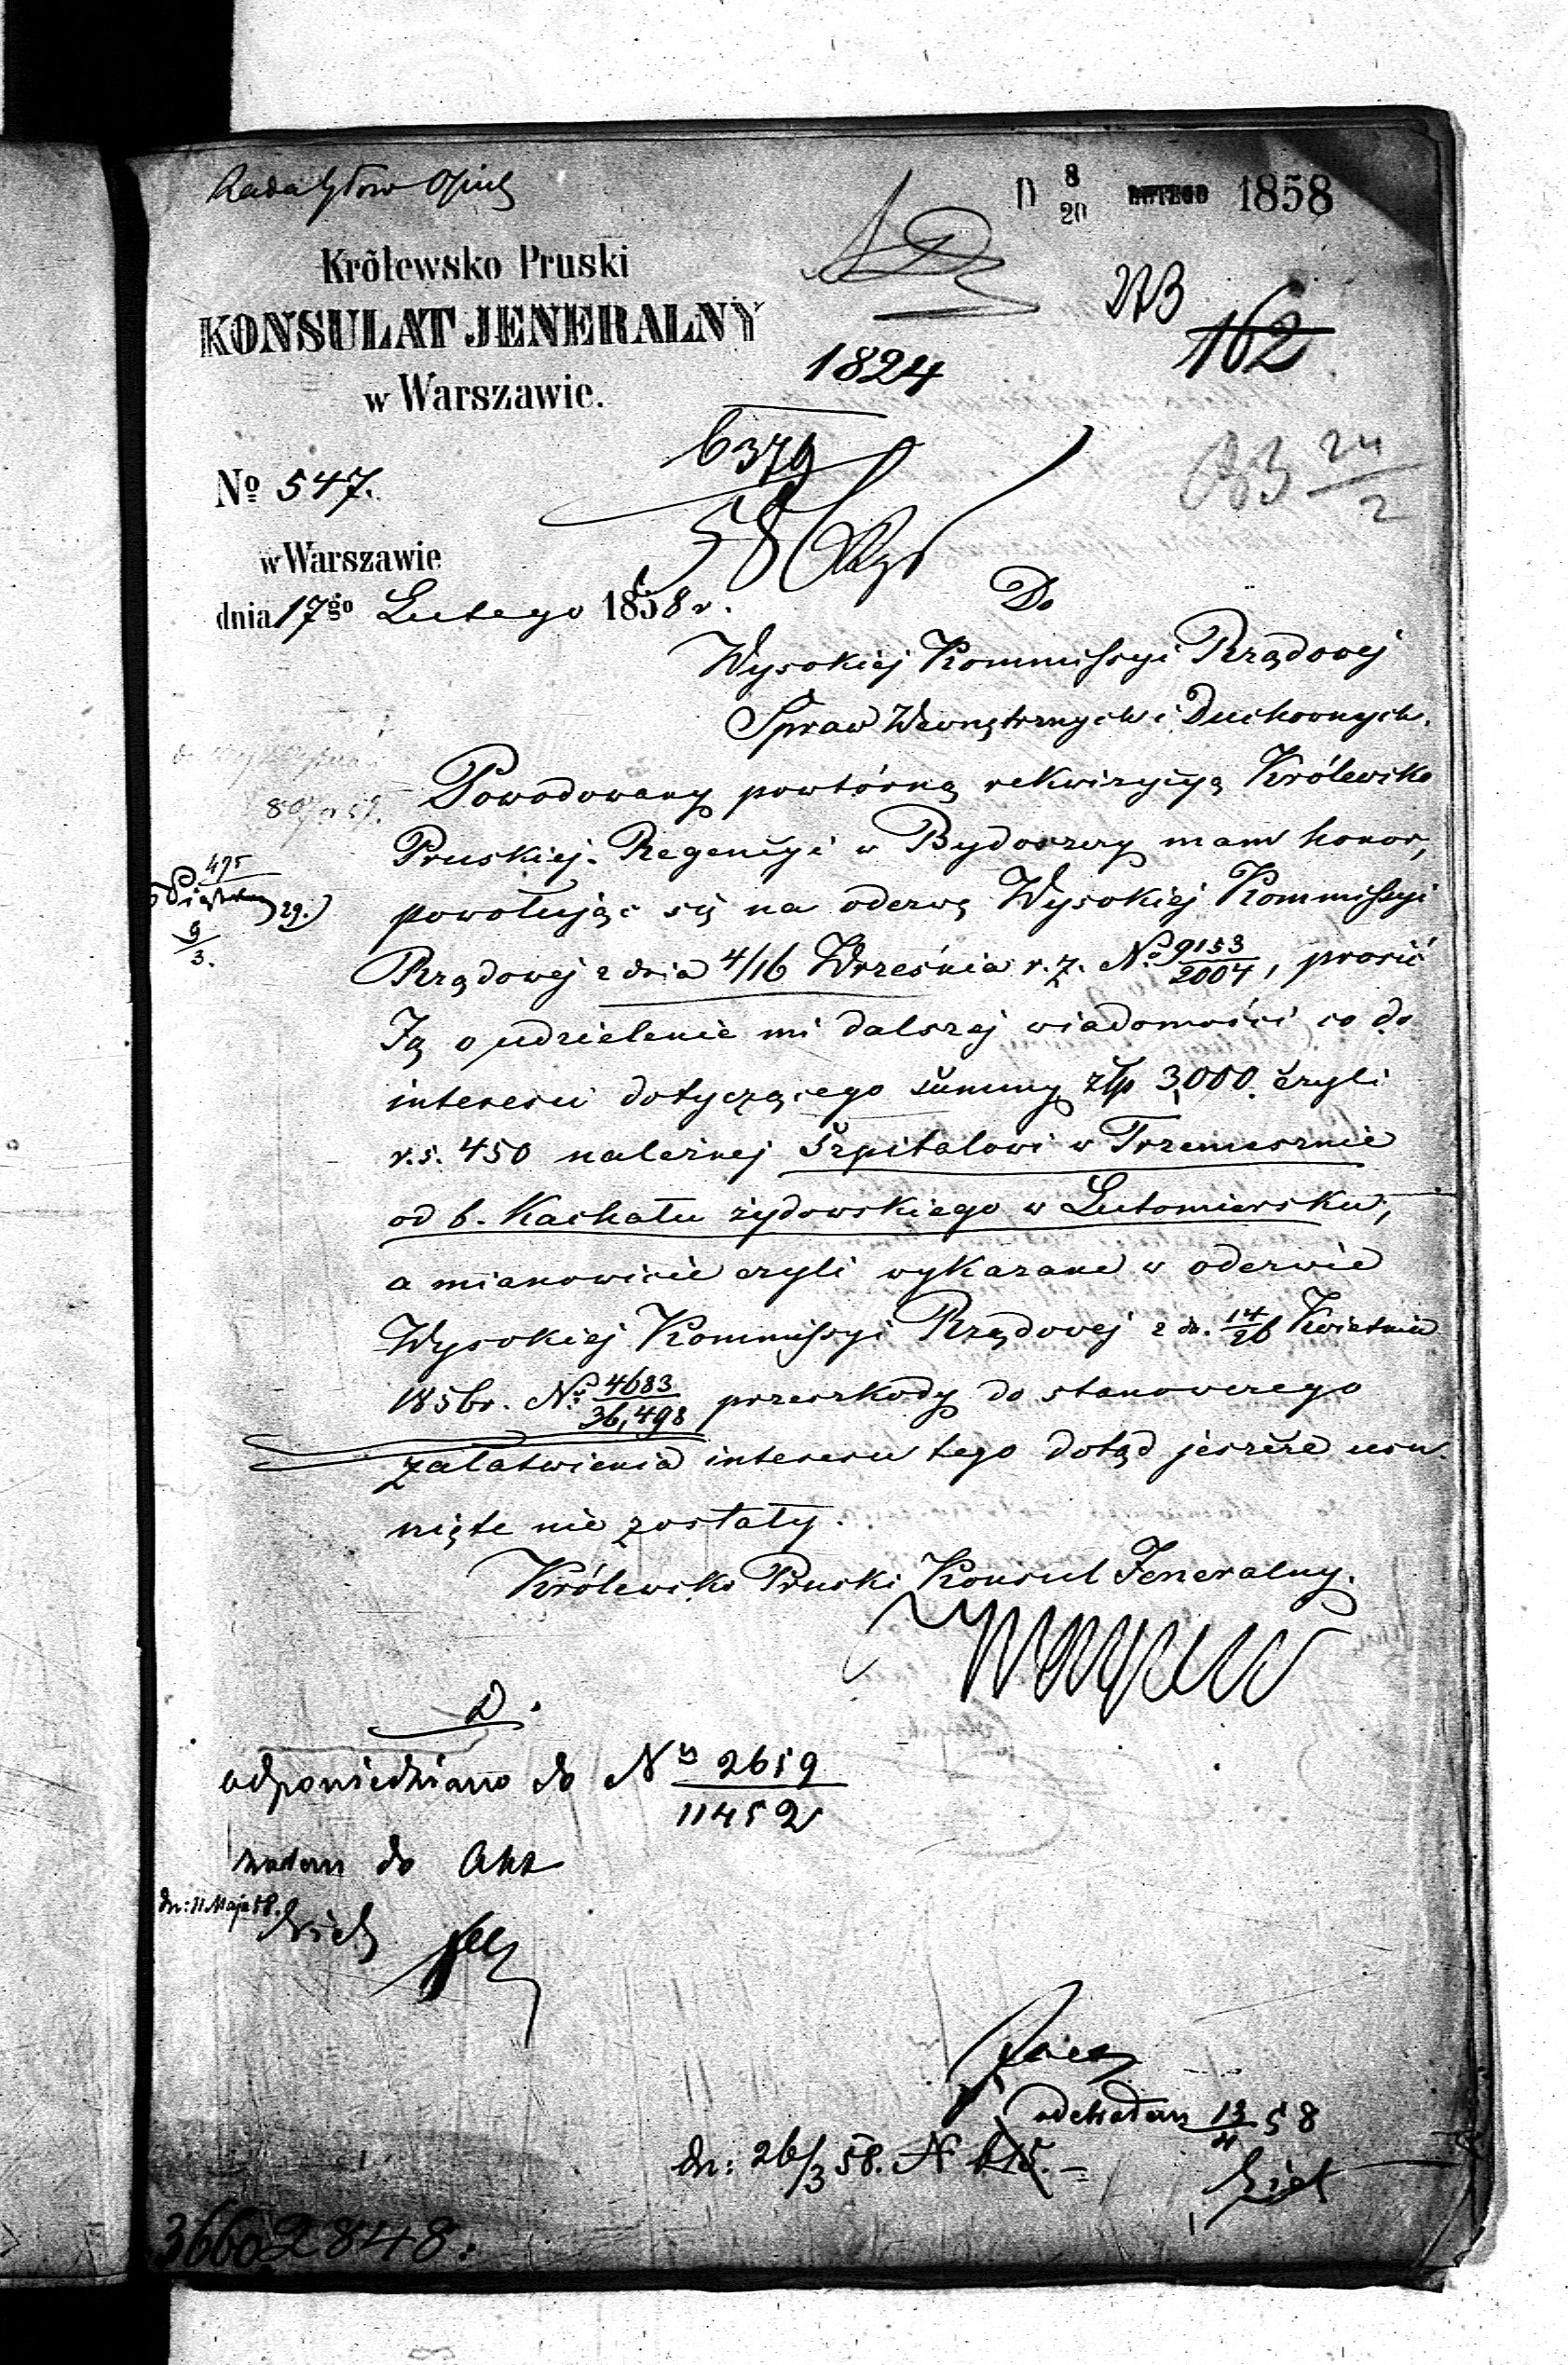 D 8/20 LUTEGO 1858
Królewsko Pruski
KONSULAT JENERALNY
w Warszawie.
1824
6379
162
24/2
No 547.
w Warszawie
dnia 17go Lutego 1858 r.
Do
Wysokiej Kommissyi Rządowej
Spraw Wewnętrznych i Duchownych.
Powodowany powtórną rekwizycyą Królewsko
Pruskiej Regencyi w Bydoszczy mam honor,
powołując się na odezwę Wysokiej Kommissyi
Rządowej z dnia 4/16 Września r. z. No 9153/2004, prosić
Ją o udzielenie mi dalszej wiadomości co do
interesu dotyczącego summy złp 3,000. czyli
r. s. 450 należnej Szpitalowi w Trzemesznie
od b. Kachału żydowskiego w Lutomiersku,
a mianowicie czyli wykazane w odezwie
Wysokiej Kommissyi Rządowej z dn. 14/26 Kwietnia
1856 r. No 4683/36,498 przeszkody do stanowczego
załatwienia interesu tego dotąd jeszcze usu-
nięte nie zostały.
Królewsko Pruski Konsul Jeneralny.
495
29.)
9/3.
D.
odpowiedziano do No 2659/11452
do Akt
dn: 11 Maja 58.
13/4 58
dn: 26/3 58. N
36602848.